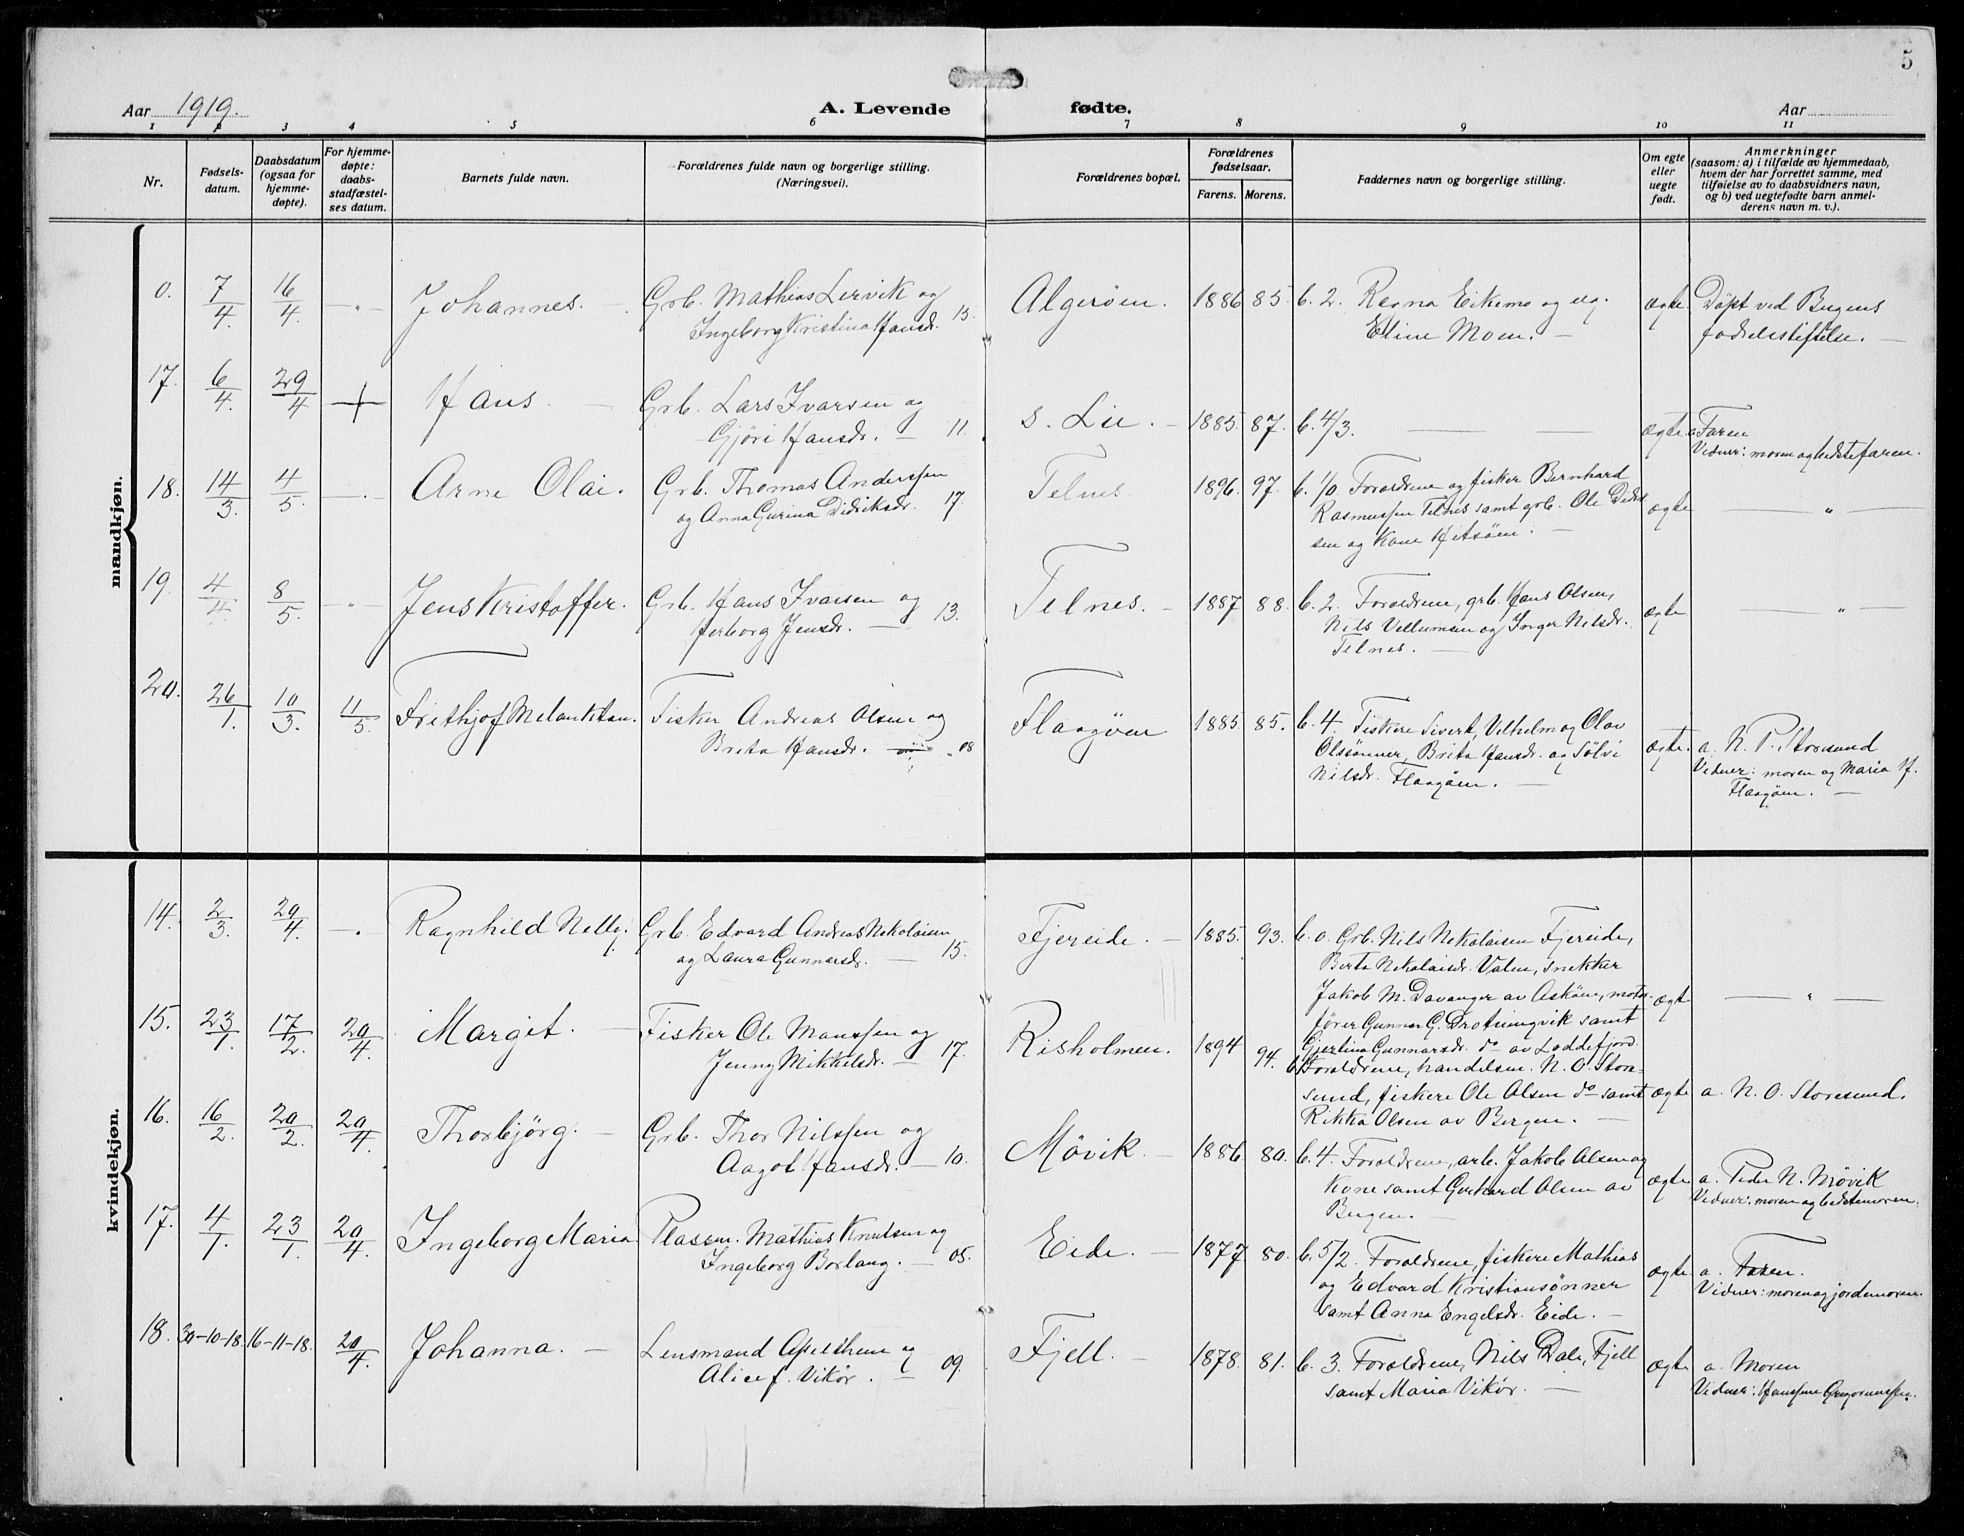 5
Aar 1919.
A. Levende fødte.
Aar
1 2 3 4 5 6 7 8 9 10 11
Nr.
Fødsels-
datum.
Daabsdatum
(ogsaa for
hjemme-
døpte).
For hjemme-
døpte:
daabs-
stadfæstel-
ses datum.
Barnets fulde navn.
Forældrenes fulde navn og borgerlige stilling.
(Næringsvei).
Forældrenes bopæl.
Forældrenes
fødselsaar.
Farens. Morens.
Faddernes navn og borgerlige stilling.
Om egte
eller
uegte
født.
Anmerkninger
(saasom: a) i tilfælde av hjemmedaab,
hvem der har forrettet samme, med
tilføielse av to daabsvidners navn,
og b) ved uegtefødte barn anmel-
derens navn m. v.).
mandkjøn.
0. 7/4. 16/4. — " — Johannes. — Grb. Mathias Lervik og
Ingeborg Kristina Hansdr. 13.
Algerøen. 1886 85. b. 2. Ragna Eikemo og
Eline Moen. —
ægte. Døpt ved Bergens
fødselsstiftelse. —
17. 6/4. 29/4 + Hans. — Grb. Lars Ivarsen og
Gjøri Hansdr. — 11.
S. Lie. — 1885. 87. b. 4/3. — —
ægte a Faren
Vidner: moren og bedstefaren.
18. 14/3. 4/5. — . — Arne Olai. Grb. Thomas Anderssen
og Anna Gurina Didriksdr. 17.
Telnes 1896. 97. b. 1/0 Forældrene og fisker Bernhard
Rasmussen Telnes samt grb. Ole Didrik
sen og Kone Hitsøen. —
ægte — " —
19. 4/4 8/5. — " — Jens Kristoffer. Grb. Hans Ivarsen og
Herborg Jensdr. — 13.
Telnes. — 1887 88. b. 2. Forældrene, grb. Hans Olsen,
Nils Vellumsen og Inger Nilsdr.
Telnes. —
ægte — " —
20. 26/1. 10/3. 11/5. Frithjof Melankton. Fisker Andreas Olsen og
Brita Hansdr. — 08
Flaagøen 1885 85. b. 4. Fiskere Sivert, Vilhelm og Olav
Olssønner, Brita Hansdr. og Sølvi
Nilsdr. Flaagøen. —
ægte. a. N. P. Storesund
Vidner: moren og Maria H.
Flaagøen. —
kvindekjøn.
14. 2/3. 20/4. — . Ragnhild Nelly. Grb. Edvard Andreas Nikolaisen
og Laura Gunnarsdr. — 15.
Fjereide. — 1885. 93. b. 0. Grb. Nils Nikolaisen Fjereide,
Berta Nikolaisdr. Valen, snekker
Jakob M. Davanger av Askøen, motor-
fører Gunnar G. Drotningvik samt
Gjertina Gunnarsdr. do av Loddefjord.
ægte — " —
15. 23/1. 17/2. 20/4. Margit. — Fisker Ole Monssen og
Jenny Mikkelsdr. — 17.
Risholmen. 1894 94. b. Forældrene, handelsm. N. O. Store-
sund, fiskere Ole Olsen do samt
Rikka Olsen av Bergen. —
ægte a. N. O. Storesund.
16. 16/2. 20/2. 20/4. Thorbjörg. — Grb. Thor Nilssen og
Aagot Hansdr. — 10.
Møvik. — 1886 80. b. 4. Forældrene, arb. Jakob Olsen og
Kone samt Gerhard Olsen av
Bergen. —
ægte a. Peder N. Møvik
Vidner: moren og bedstemoren.
17. 4/1. 23/1. 20/4. Ingeborg Maria Plassm. Mathias Knutsen og
Ingeborg Borlaug. — 05.
Eide. — 1877 80. b. 5/2. Forældrene, fiskere Mathias
og Edvard Kristiansønner
samt Anna Engelsdr. Eide. —
ægte a. Faren.
Vidner: moren og jordemoren.
18. 30-10-18. 16-11-18. 20/4. Johanna. — Lensmand Apelthun og
Alice f. Vikør. — 09.
Fjell. — 1878. 81. b. 3. Forældrene, Nils Dale, Fjell
samt Maria Vikør. —
ægte a. Moren
Vidner: Hanssine Gregoriussen.